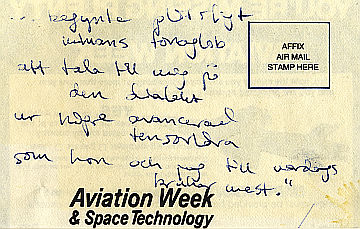 ... begynte plötsligt
att tala till mig på
den dialekt
ur högre avancerad
som hon och jag till vardags
brukar mest."
AFFIX
AIR MAIL
STAMP HERE
Aviation Week
& Space Technology